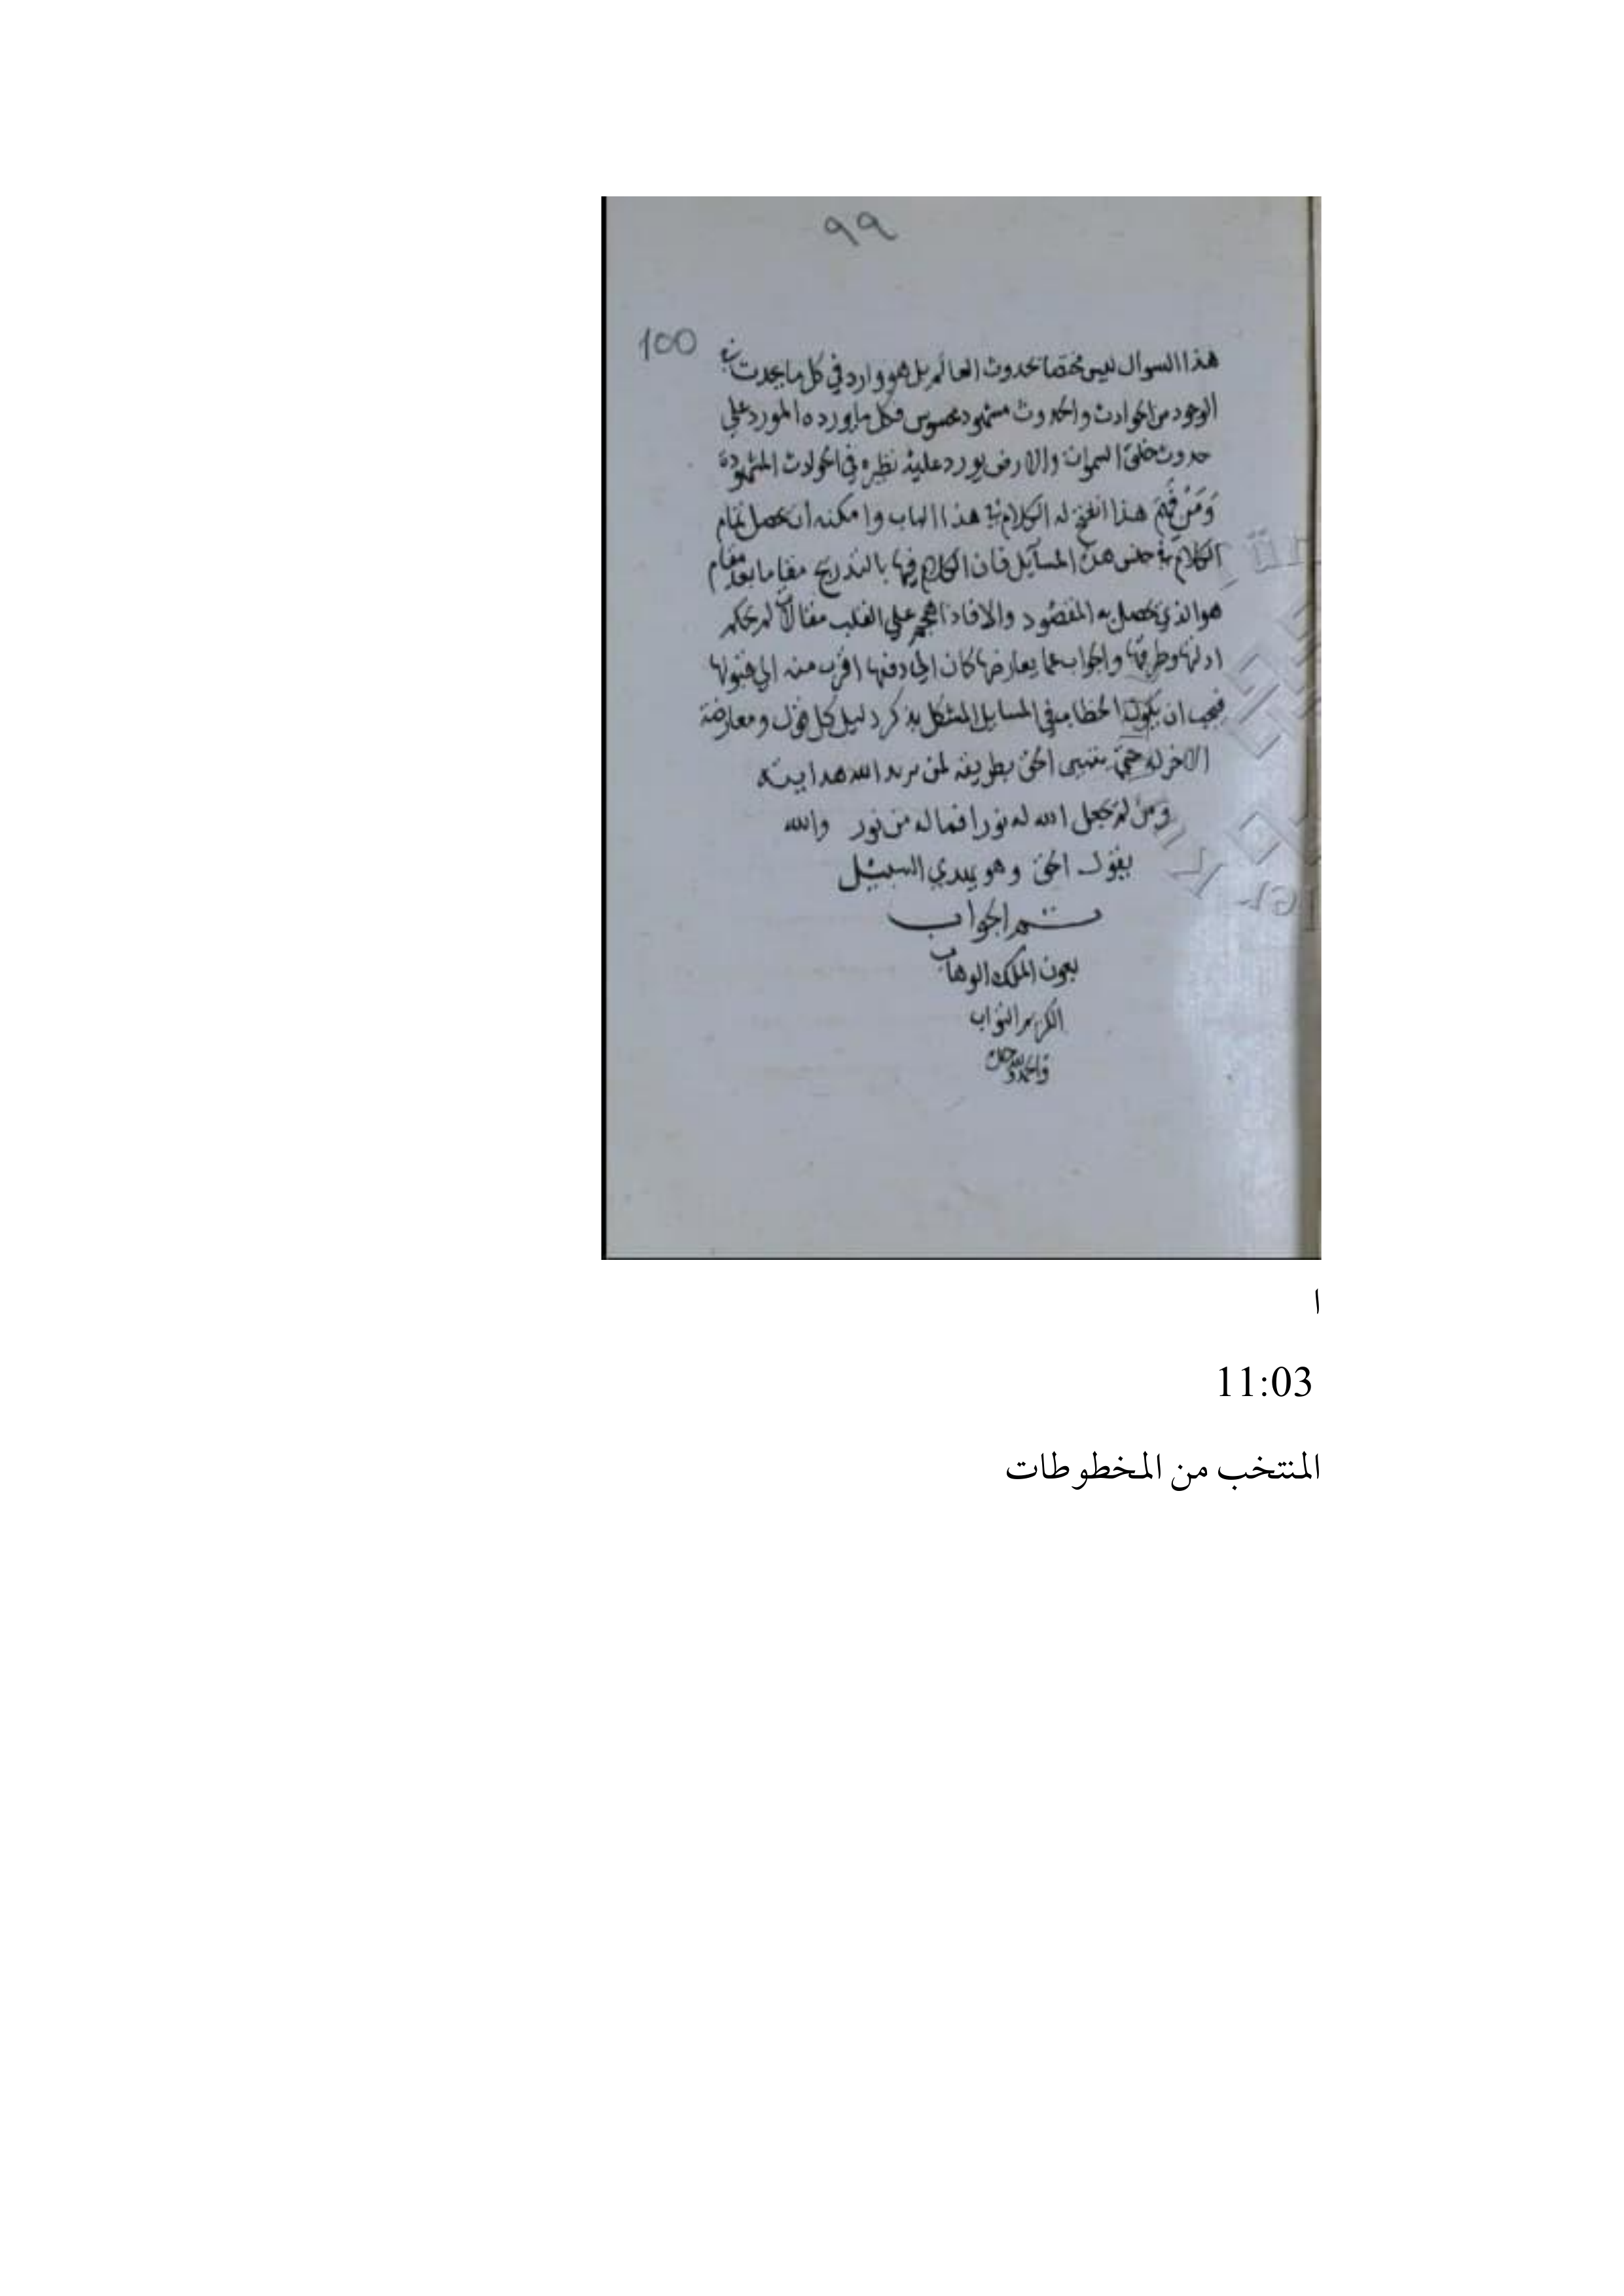 ٩٩
100
هذا السوال ليس مختصا بحدوث العالم بل هو وارد في كل ما يحدث في
الوجود من الحوادث والحدوث مشهود محسوس فكل ما يورده المورد علي
حدوث خلق السموات والارض يورد عليه نظيره في الحوادث المشهودة
وَمَنْ فَهِمَ هذا انفتح له الكلام في هذا الباب وامكنه ان يحصل تمام
الكلام في جنس هذه المسآيل فان الكلام فيها بالتدريج مقاما بعد مقام
هو الذي يحصل به المقصود والا فاذا هجم علي القلب مقالات لم يحكم
ادلتها وطرقها والجواب عما يعارضها كان الي دفعها اقرب منه الي قبولها
فيجب ان يكون الخطاب في المسايل المشكل بذكر دليل كل قول ومعارضة
الاخر له حتي يتبين الحق بطريقه لمن يريد الله هدايته
ومن لم يجعل الله له نورا فما له من نور والله
يقول الحق وهو يهدي السبيل
تم الجواب
بعون الملك الوهاب
الكريم التواب
والحمد لله
ا
11:03
المنتخب من المخطوطات